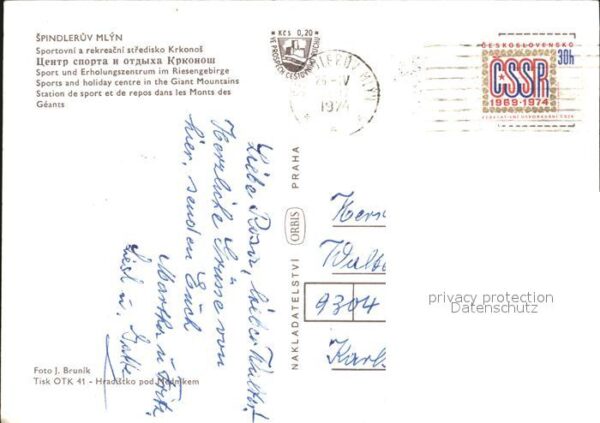 ŠPINDLERŮV MLÝN
Sportovní a rekreační středisko Krkonoš
Центр спорта и отдыха Крконош
Sport und Erholungszentrum im Riesengebirge
Sports and holiday centre in the Giant Mountains
Station de sport et de repos dans les Monts des
Géants
Kčs 0,20
VE PROSPĚCH CESTOVNÍHO RUCHU
1974
ČESKOSLOVENSKO
30h
ČSSR
1969-1974
Liebe Rosa, lieber Walter!
Herzliche Grüsse von
hier, senden Euch
Martha u. Fritz
Liesl u.
NAKLADATELSTVÍ ORBIS PRAHA
9304
privacy protection
Datenschutz
Foto J. Bruník
Tisk OTK 41 - Hradištko pod Medníkem